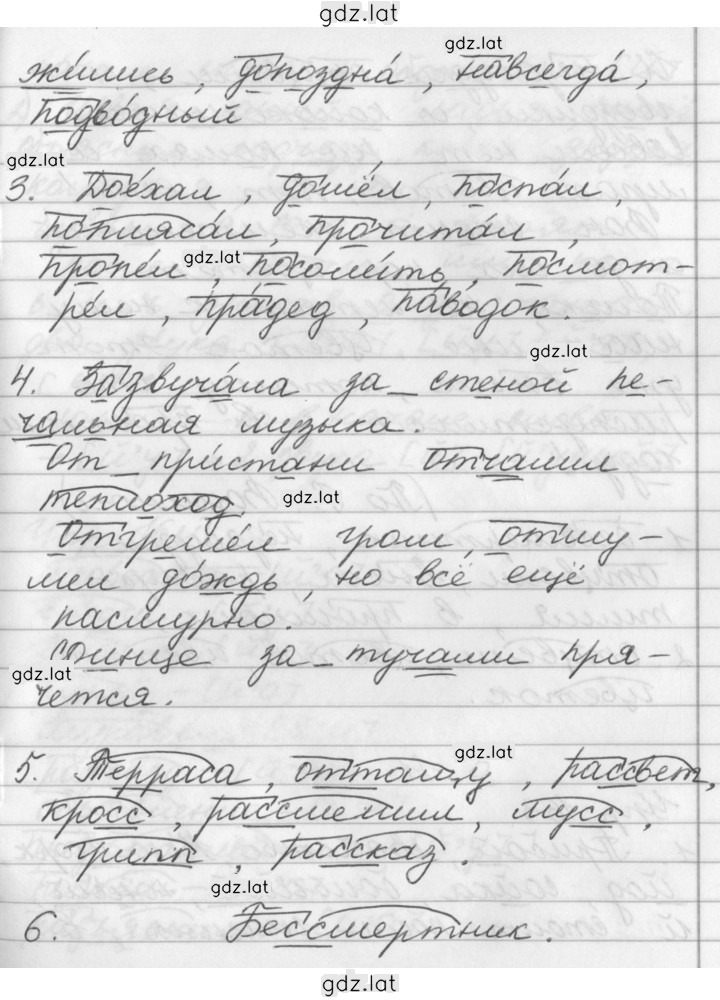 gdz.lat
жились, допоздна́, навсегда́,
gdz.lat
подво́дный
gdz.lat
3. Дое́хал, дошёл, поспа́л,
попляса́л, прочита́л,
пропе́л, посоли́ть, посмот-
gdz.lat
ре́л, пра́дед, па́водок.
gdz.lat
4. Зазвуча́ла за_стеной пе-
чальная музыка.
От_при́стани отчалил
теплоход.
gdz.lat
Отгреме́л гром, отшу-
мел дождь, но всё ещё
пасмурно.
Солнце за_тучами пря-
gdz.lat
чется.
gdz.lat
5. Терраса, оттащу, рассвет,
кросс, рассмешил, мусс,
грипп, рассказ.
gdz.lat
6. Бессмертник.
gdz.lat